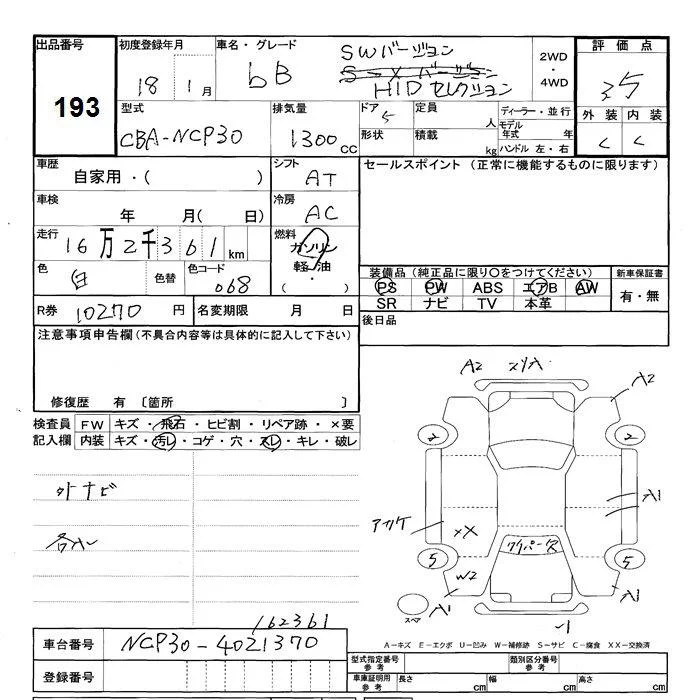 出品番号 初度登録年月 車名・グレード SWバージョン 2WD 評価点
193 18 1月 bB S-Xバージョン ・ 3.5
HIDセレクション 4WD
型式 排気量 ドア 定員 ディーラー・並行 外装 内装
CBA-NCP30 1300CC 5 人 モデル年式 年 C C
形状 積載 kg ハンドル 左・右
車歴 シフト セールスポイント (正常に機能するものに限ります)
自家用・( ) AT
車検 冷房
年 月( 日) AC
走行 燃料
16万2千361km ガソリン
軽・油
色 色替 色コード ・
白 068 ( )
装備品(純正品に限り〇をつけてください) 新車保証書
PS PW ABS エアB AW 有・無
SR ナビ TV 本革
R券 10270円 名変期限 月 日
後日品
注意事項申告欄(不具合内容等は具体的に記入して下さい)
修復歴 有 〔箇所 〕
検査員 FW キズ・飛石・ヒビ割・リペア跡・×要
記入欄 内装 キズ・汚レ・コゲ・穴・スレ・キレ・破レ
A2 スリA
A2
2 2
外ナビ
A1
アカケ
XX
ワイパー欠
5 5
W2
A1 A1
スペア
-1
162361
車台番号 NCP30-4021370
A-キズ E-エクボ U-凹み W-補修跡 S-サビ C-腐食 XX-交換済
登録番号
型式指定番号 参考 類別区分番号 参考
車庫証明用 参考 長さ cm 幅 cm 高さ cm